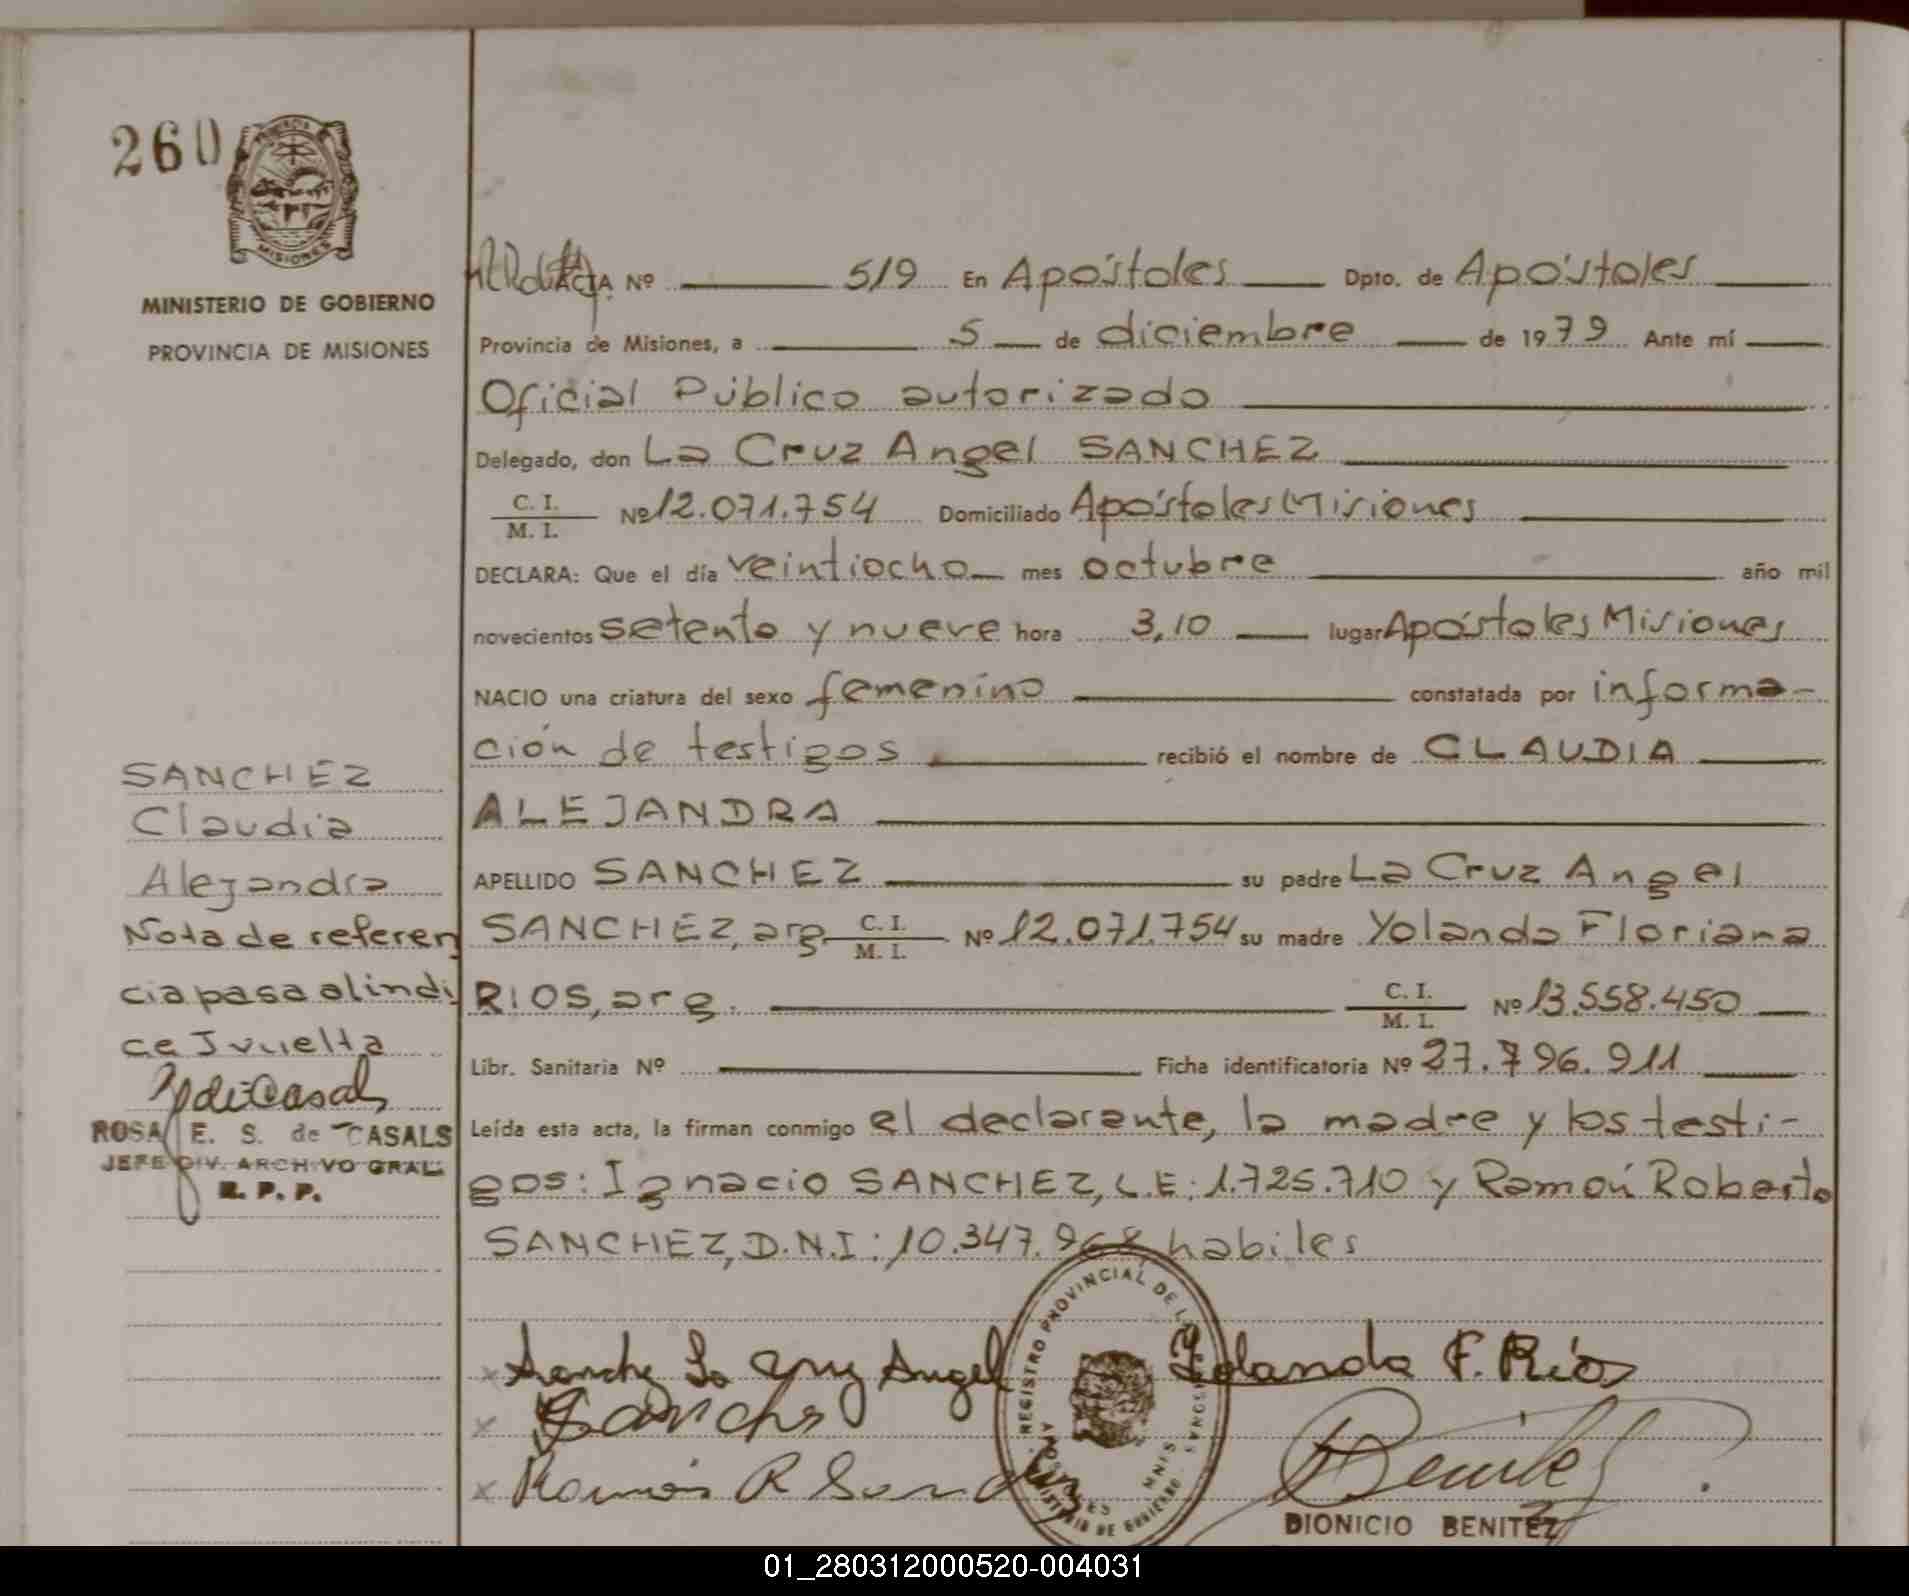 260
PROVINCIA
MISIONES
MINISTERIO DE GOBIERNO
PROVINCIA DE MISIONES
ACTA Nº 519 En Apóstoles Dpto. de Apóstoles
Provincia de Misiones, a 5 de diciembre de 1979 Ante mí
Oficial Público autorizado
Delegado, don La Cruz Angel SANCHEZ
C. I.
M. I. Nº 12.071.754 Domiciliado Apóstoles Misiones
DECLARA: Que el día veintiocho mes octubre año mil
novecientos setenta y nueve hora 3,10 lugar Apóstoles Misiones
NACIO una criatura del sexo femenino constatada por informa-
ción de testigos recibió el nombre de CLAUDIA
ALEJANDRA
APELLIDO SANCHEZ su padre La Cruz Angel
SANCHEZ, arg C. I. M. I. Nº 12.071.754 su madre Yolanda Floriana
RIOS, arg. C. I. M. I. Nº 13.558.450
Libr. Sanitaria Nº Ficha identificatoria Nº 27.796.911
Leída esta acta, la firman conmigo el declarante, la madre y los testi-
gos: Ignacio SANCHEZ, L.E: 1.725.710 y Ramón Roberto
SANCHEZ, D.N.I: 10.347.968 habiles
SANCHEZ
Claudia
Alejandra
Nota de referen
cia pasa al indi
ce J vuelta
ROSA E. S. de CASALS
JEFE DIV. ARCHIVO GRAL.
R. P. P.
Sanchez La Cruz Angel Yolanda F. Rios
Sanchez
Ramón R Sanchez Benitez
REGISTRO PROVINCIAL DE LAS PERSONAS
APOSTOLES MNES
MINISTERIO DE GOBIERNO
DIONICIO BENITEZ
01_280312000520-004031